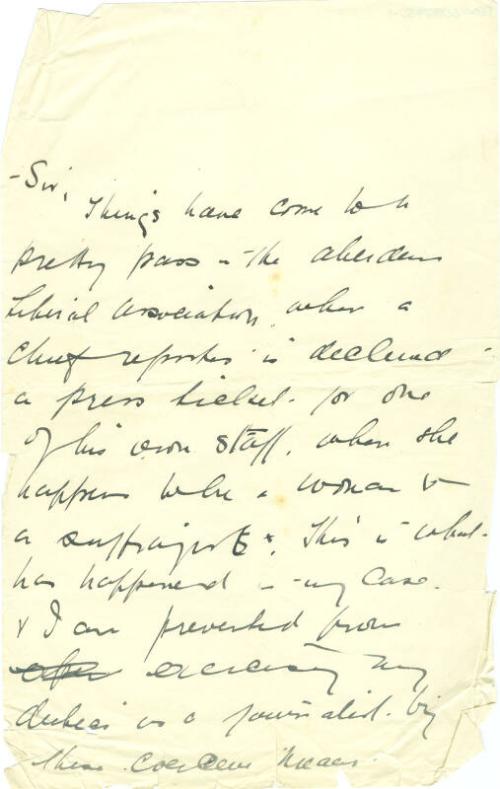 - Sir,
Things have come to a
pretty pass in the Aberdeen
Liberal Association, when a
chief reporter is declined
a press ticket for one
of his own staff, when she
happens to be a woman &
a suffragist. This is what
has happened in my case
& I am prevented from
exercising my
duties as a journalist by
these means.